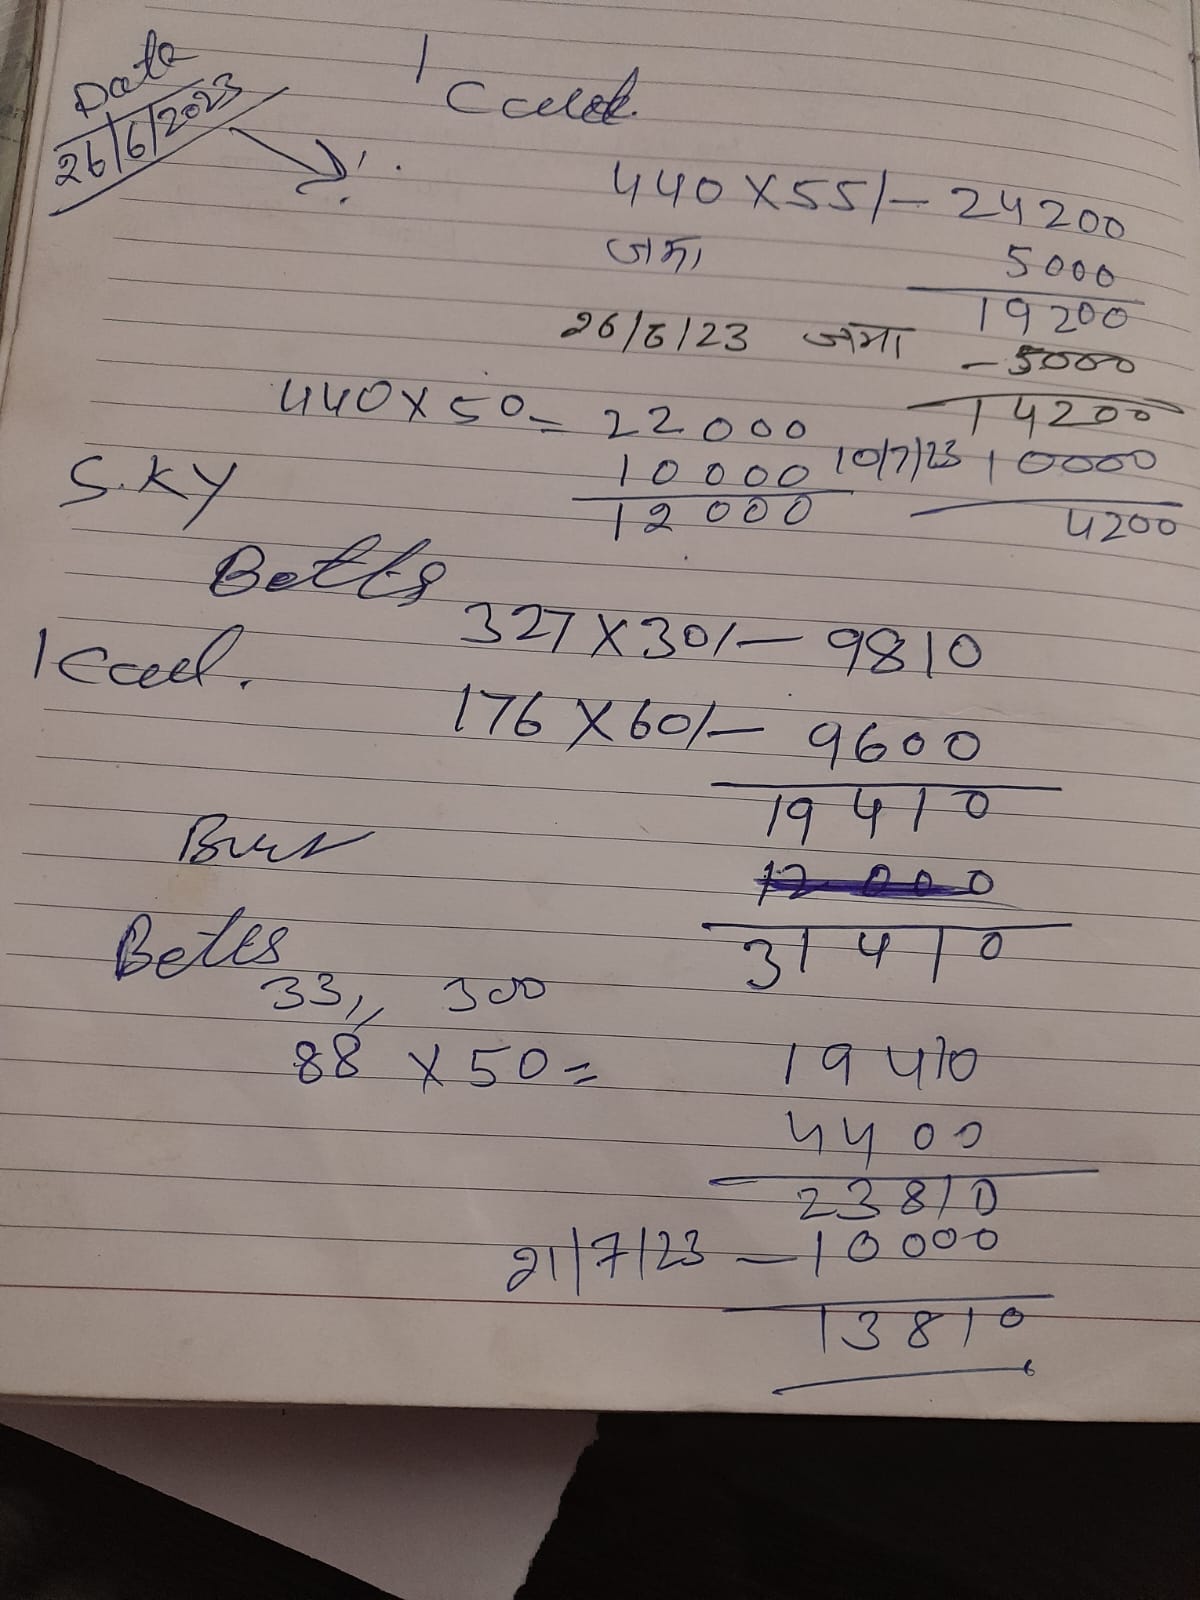 Date
26/6/2023
1
440 X 55/- 24200
जमा 5000
19200
26/6/23 जमा - 5000
14200
440 X 50 = 22000
10000 10/7/23 10000
S.KY 12000 4200
327 X 30/- 9810
1
176 X 60/- 9600
19410
12000
31410
33,, 300
88 X 50 = 19410
4400
23810
21/7/23 - 10000
13810